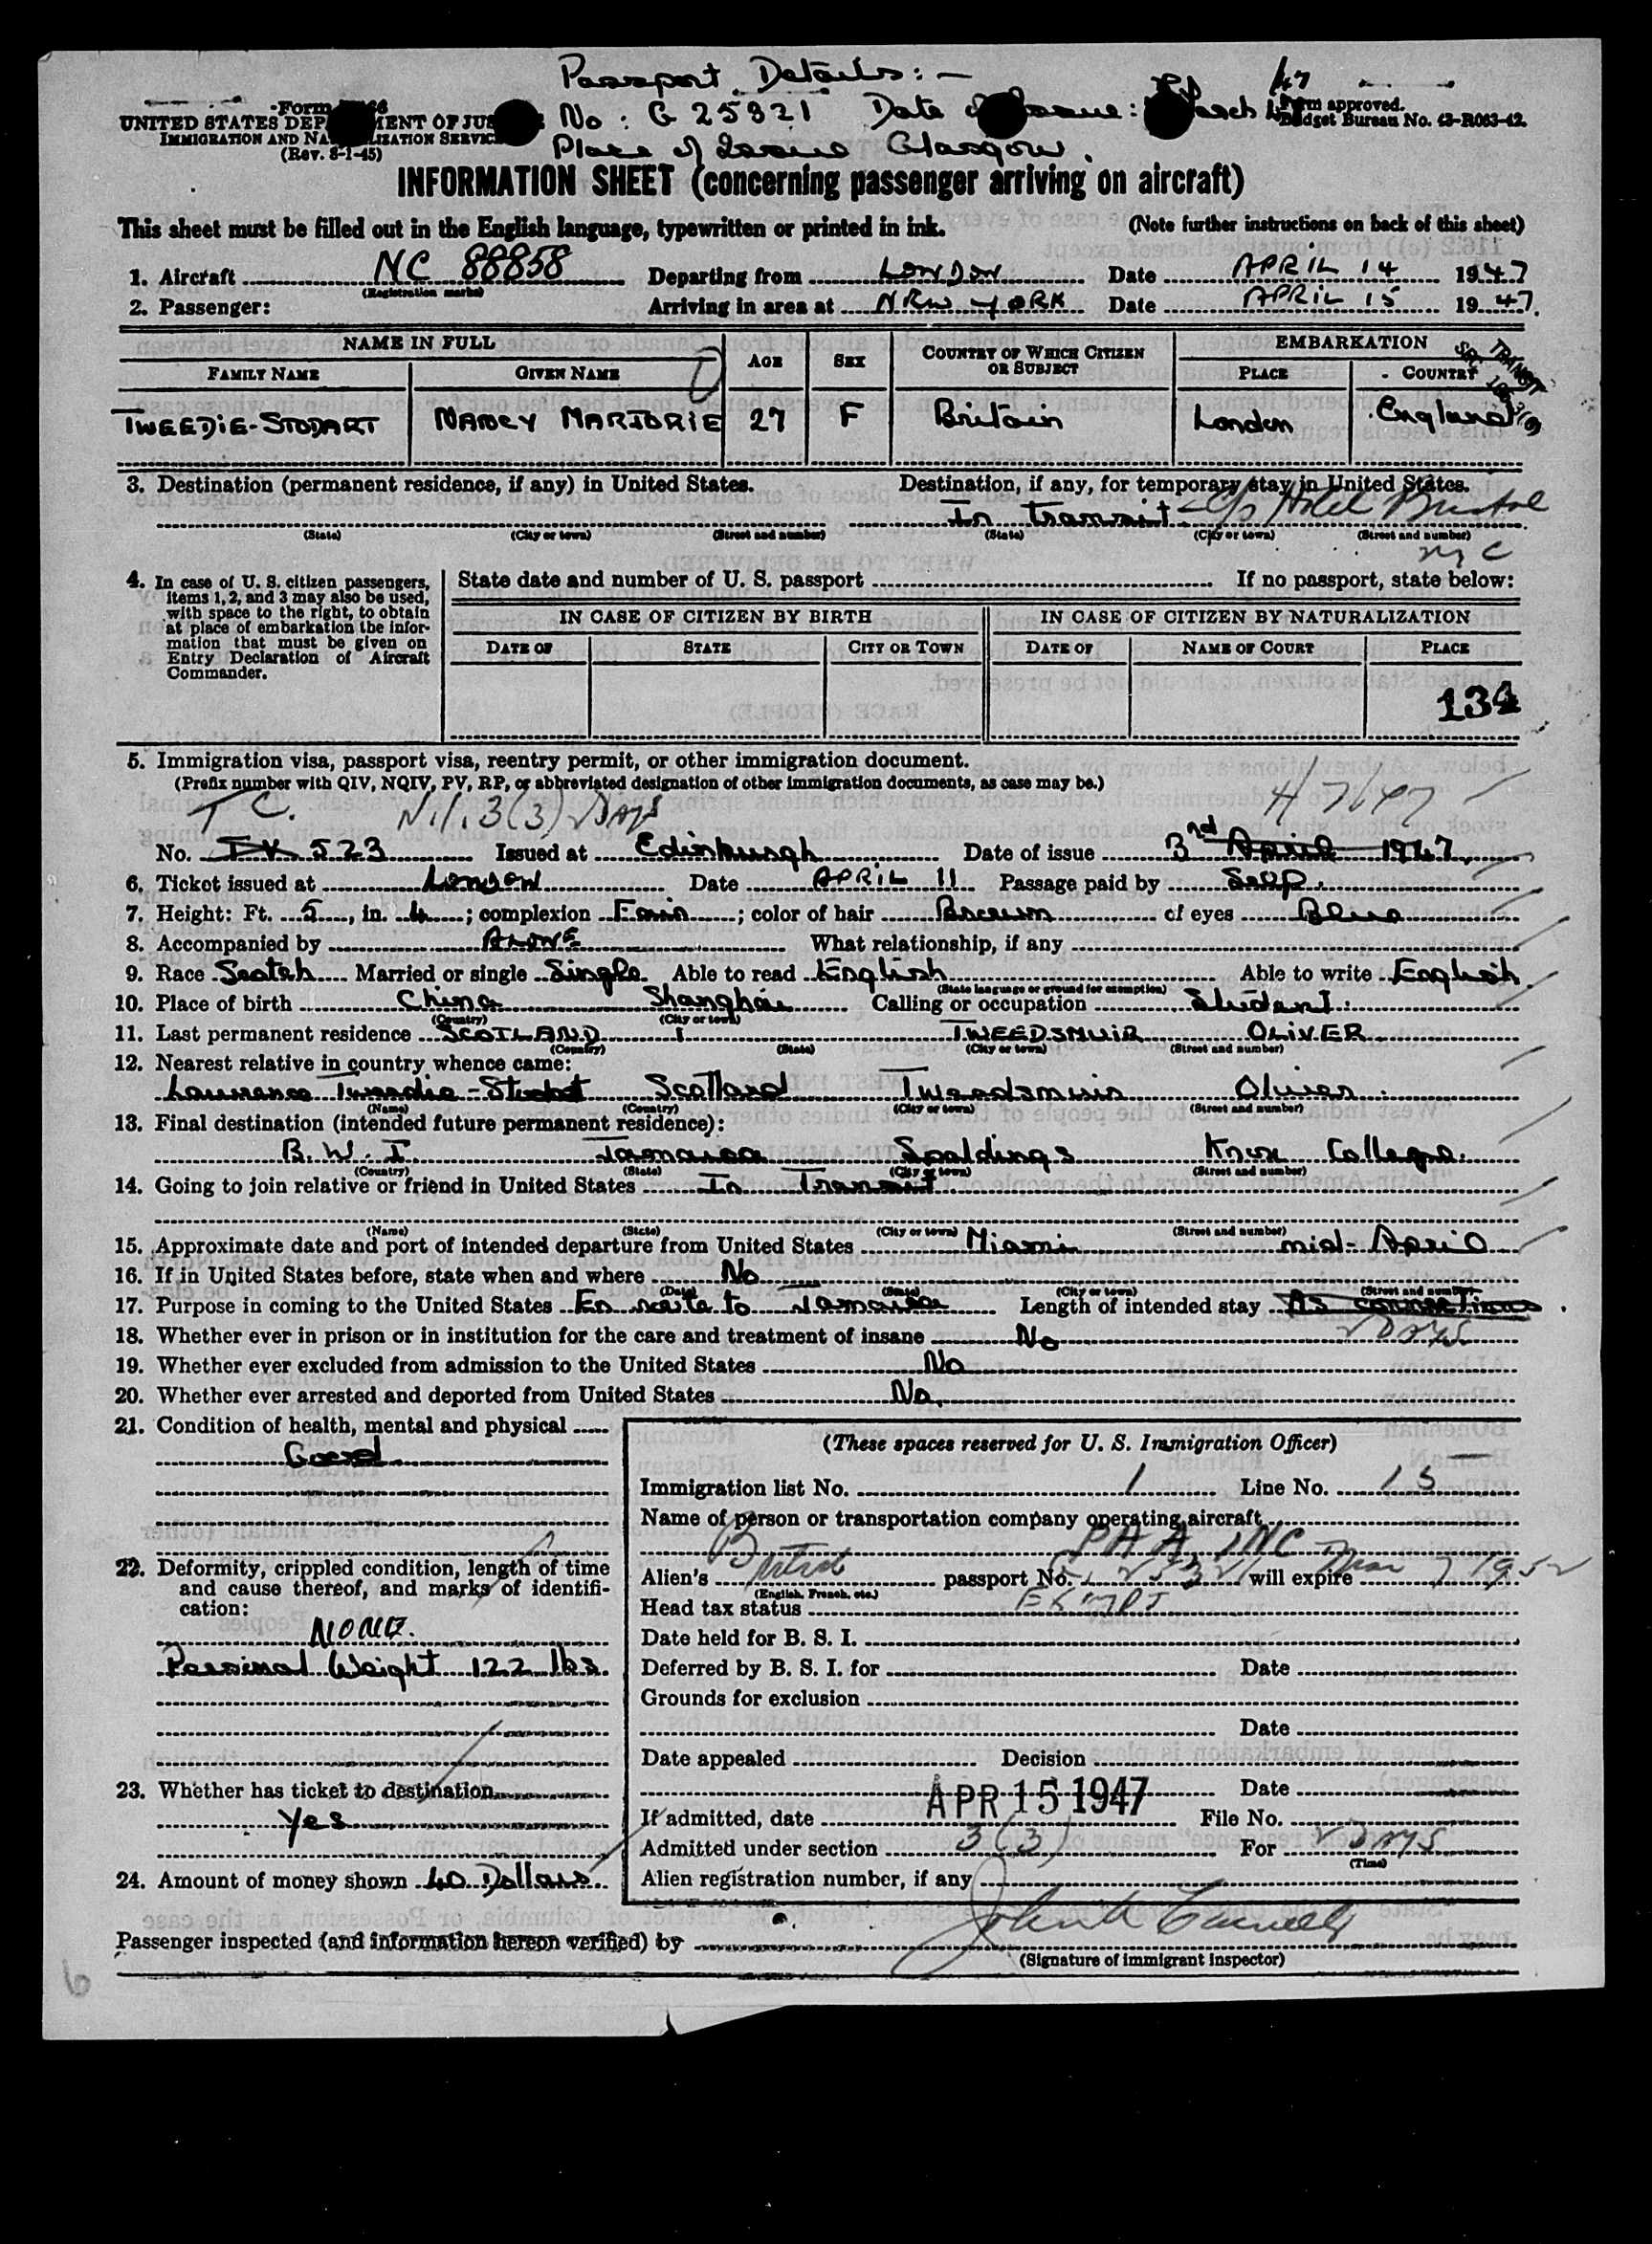 Passport Details: —
47
Form
No: G 25321 Date of Issue: March
Form approved.
UNITED STATES DEPARTMENT OF JUSTICE
Budget Bureau No. 43-R063-42.
IMMIGRATION AND NATURALIZATION SERVICE
(Rev. 8-1-45)
Place of Issue Glasgow.
INFORMATION SHEET (concerning passenger arriving on aircraft)
This sheet must be filled out in the English language, typewritten or printed in ink. (Note further instructions on back of this sheet)
1. Aircraft NC 88858 Departing from LONDON Date APRIL 14 1947
(Registration marks)
2. Passenger: Arriving in area at NEW YORK Date APRIL 15 1947.
NAME IN FULL AGE SEX COUNTRY OF WHICH CITIZEN OR SUBJECT EMBARKATION
FAMILY NAME GIVEN NAME PLACE COUNTRY
TRANSIT
TWEEDIE-STODART NANCY MARJORIE 27 F Britain London England
3. Destination (permanent residence, if any) in United States. Destination, if any, for temporary stay in United States.
In transit - c/o Hotel Bristol
(State) (City or town) (Street and number) (State) (City or town) (Street and number)
NYC
4. In case of U. S. citizen passengers, items 1, 2, and 3 may also be used, with space to the right, to obtain at place of embarkation the information that must be given on Entry Declaration of Aircraft Commander.
State date and number of U. S. passport If no passport, state below:
IN CASE OF CITIZEN BY BIRTH IN CASE OF CITIZEN BY NATURALIZATION
DATE OF STATE CITY OR TOWN DATE OF NAME OF COURT PLACE
134
5. Immigration visa, passport visa, reentry permit, or other immigration document.
(Prefix number with QIV, NQIV, PV, RP, or abbreviated designation of other immigration documents, as case may be.)
T C. 3(3) Days 4/7/47
No. 523 Issued at Edinburgh Date of issue 3rd April 1947
6. Ticket issued at LONDON Date APRIL 11 Passage paid by Self.
7. Height: Ft. 5, in. 4; complexion Fair; color of hair Brown of eyes Blue
8. Accompanied by ALONE What relationship, if any
9. Race Scotch Married or single Single Able to read English Able to write English.
(State language or ground for exemption)
10. Place of birth China Shanghai Calling or occupation Student.
(Country) (City or town)
11. Last permanent residence SCOTLAND TWEEDSMUIR OLIVER
(Country) (State) (City or town) (Street and number)
12. Nearest relative in country whence came:
Laurence Tweedie-Stodart Scotland Tweedsmuir Oliver.
(Name) (Country) (City or town) (Street and number)
13. Final destination (intended future permanent residence):
B. W. I. Jamaica Spaldings Knox College.
(Country) (State) (City or town) (Street and number)
14. Going to join relative or friend in United States In Transit
(Name) (State) (City or town) (Street and number)
15. Approximate date and port of intended departure from United States Miami mid-April
16. If in United States before, state when and where No
(Date) (State) (City or town) (Street and number)
17. Purpose in coming to the United States En route to Jamaica Length of intended stay As connections.
DAYS
18. Whether ever in prison or in institution for the care and treatment of insane No
19. Whether ever excluded from admission to the United States No
20. Whether ever arrested and deported from United States No.
21. Condition of health, mental and physical
Good
22. Deformity, crippled condition, length of time and cause thereof, and marks of identification:
None.
Personal Weight 122 lbs.
23. Whether has ticket to destination
Yes
24. Amount of money shown 40 Dollars
(These spaces reserved for U. S. Immigration Officer)
Immigration list No. 1 Line No. 15
Name of person or transportation company operating aircraft
PAA INC
Alien's British passport No. 25321 will expire Mar 7 1952
(English, French, etc.)
Head tax status EXMPT
Date held for B. S. I.
Deferred by B. S. I. for Date
Grounds for exclusion
Date
Date appealed Decision
Date
If admitted, date APR 15 1947 File No.
Admitted under section 3(3) For DAYS
(Time)
Alien registration number, if any
Passenger inspected (and information hereon verified) by
(Signature of immigrant inspector)
6